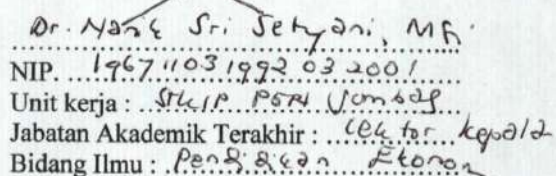 Dr. Nanik Sri Setyani, M.Si
NIP. 19671103 1992 03 2001
Unit kerja : STKIP PGRI Jombang
Jabatan Akademik Terakhir : Lektor kepala
Bidang Ilmu : Pendidikan Ekonomi